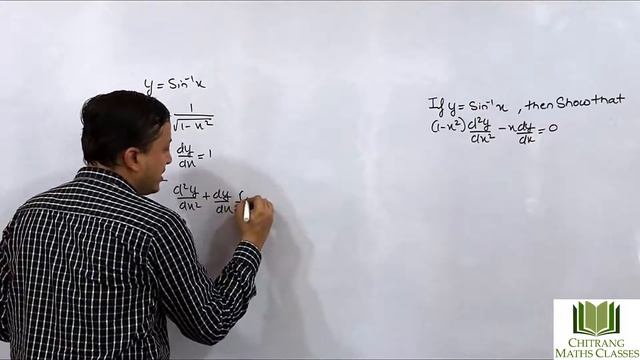 y = Sin⁻¹x
1/√(1-x²)
dy/dx = 1
d²y/dx² + dy/dx
If y = Sin⁻¹x , then Show that
(1-x²) d²y/dx² - x dy/dx = 0
CHITRANG
MATHS CLASSES